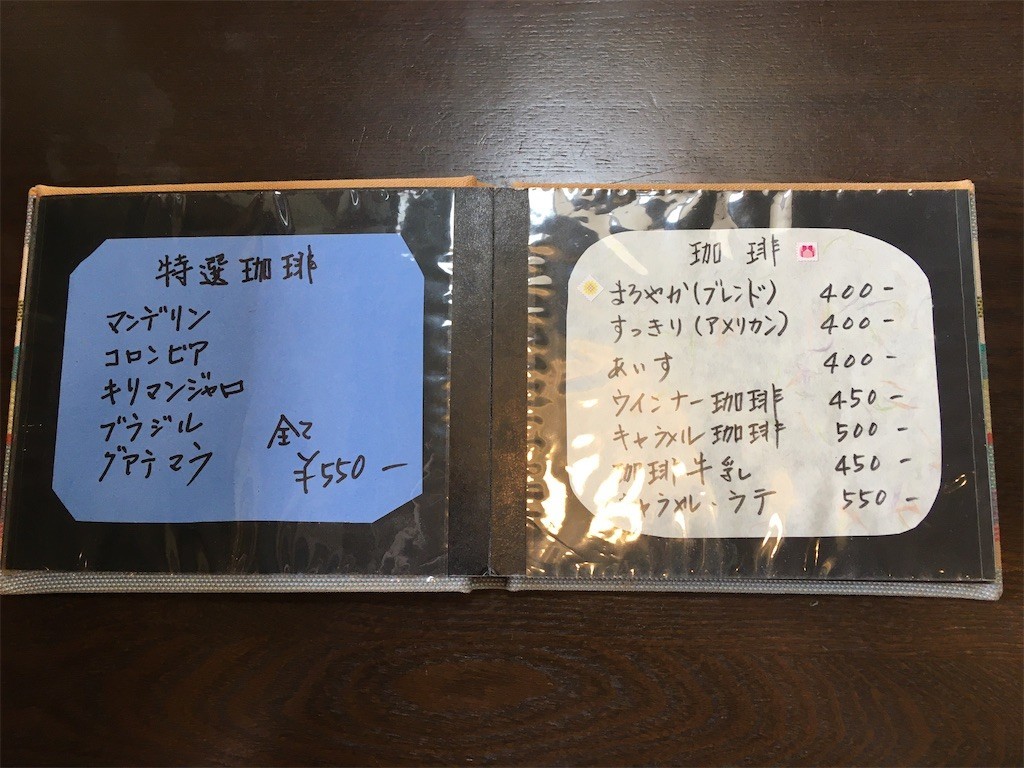 特選珈琲
マンデリン
コロンビア
キリマンジャロ
ブラジル
グアテマラ
全て
¥550-
珈琲
まろやか(ブレンド) 400-
すっきり(アメリカン) 400-
あいす 400-
ウインナー珈琲 450-
キャラメル珈琲 500-
珈琲牛乳 450-
キャラメル・ラテ 550-